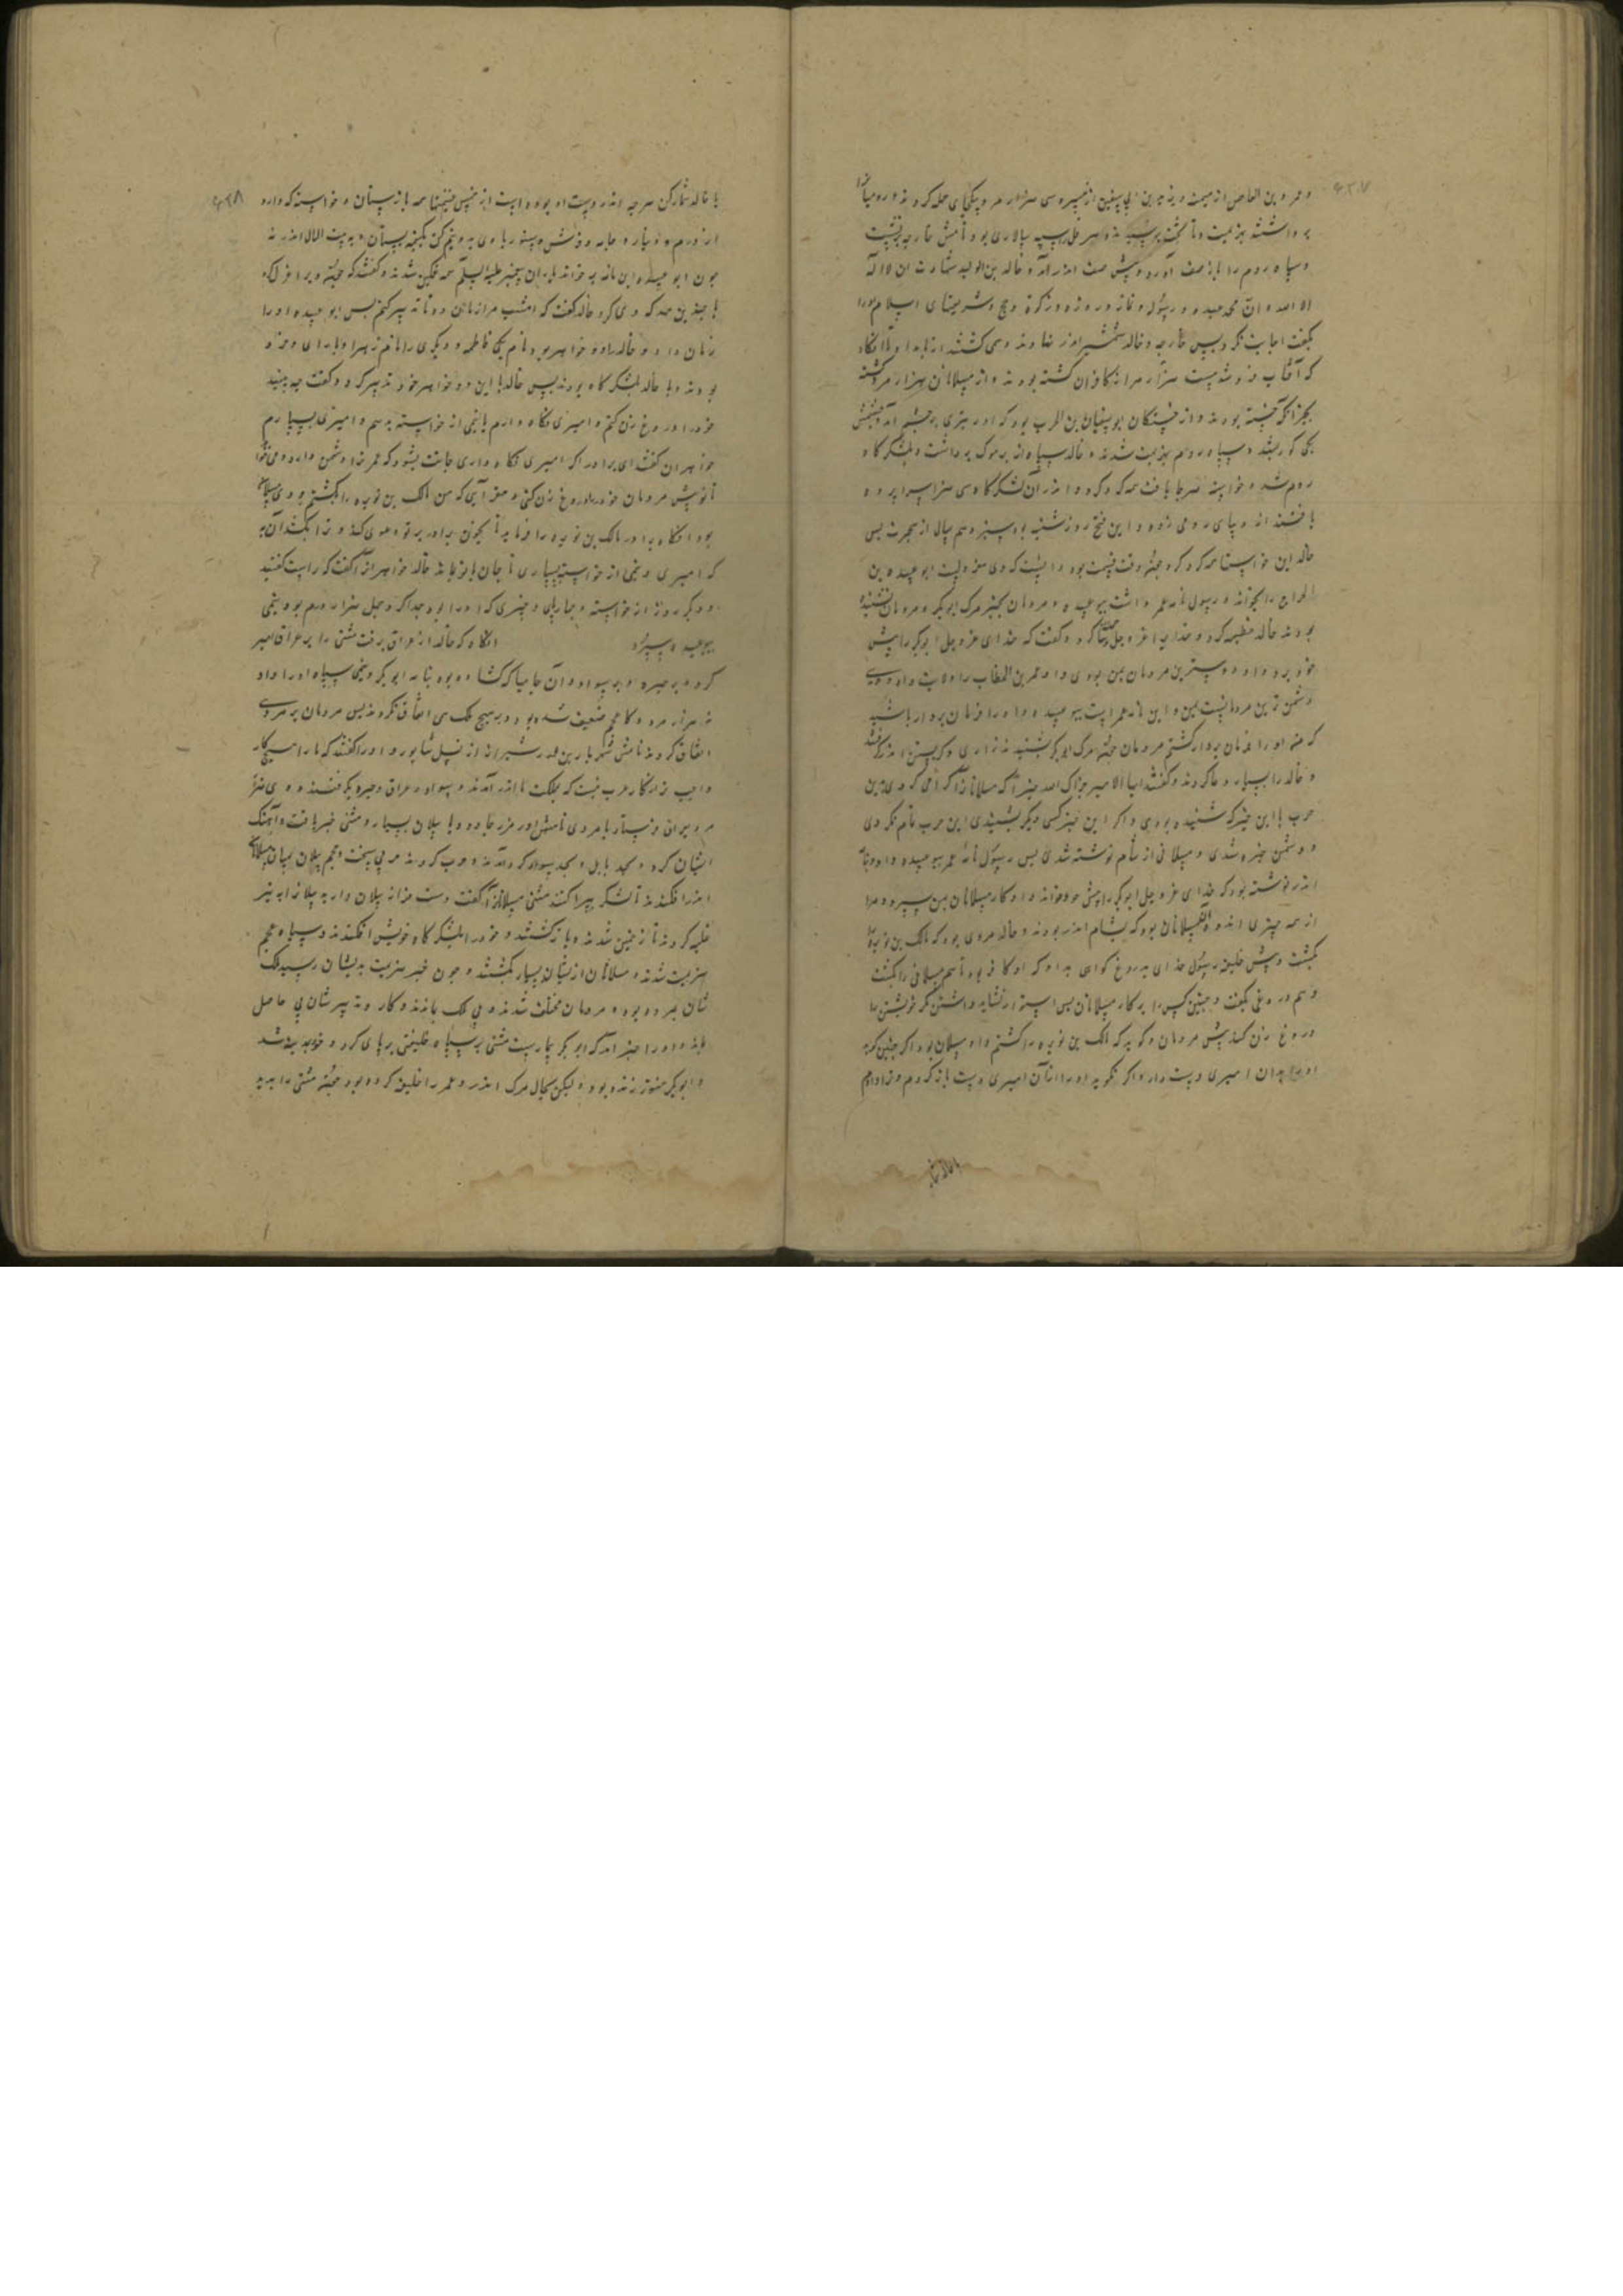 و عمرو بن العاص از میمنه و یزید بن ابی سفین از میسره سی هزار مرد بیکبار حمله کردند و رومیانرا
برداشتند بهزیمت و تا بخیمه و سرهنگ سپه سالاری بود نامش جارجه
و سپاه روم را باز صف آورد و پیش صف اندر آمد و خالد بن الولید شهادت ان لا اله
الا الله و ان محمد عبده و رسوله و نماز و روزه و زکوة و حج و شریعتهای اسلام او را
بگفت اجابت نکرد پس جارجه و خالد شمشیر اندر نهادند و می کشتند از بامداد تا انگاه
که آفتاب فرو شد بیست هزار مرد از کافران کشته بودند و از مسلمانان سه هزار مرد کشته
بجز آنکه خسته بودند و از خستکان ابو سفیان بن الحرب بود که او را تیری بچشم آمد و چشمش
یکی کور بشد و سپاه روم بهزیمت شدند و خالد سپاه از یرموک برداشت و بلشکرگاه
روم شد و خواسته هرجا یافت همه گرد کرد و اندر آن لشکرگاه سی هزار سراپرده
یافتند از دیبای رومی زده و این فتح روز شنبه بود سیزدهم سال از هجرت پس
خالد این خواستها همه گرد کرد و وقت قسمت بود دانست که وی معزولست ابو عبیده بن
الجراح را بخواند و رسول نامه عمر داشت ببو عبیده و مردمان بخبر مرگ ابوبکر و مردمان نشنیده
بودند خالد خطبه کرد و خدایرا عز و جل ثنا کرد و گفت که خدای عز و جل ابوبکر را پیش
خود برد و او دوسترین مردمان بمن بودی و عمر بن الخطاب را ولایت داد و وی
دشمن ترین مردمانست بمن و این نامه عمر است ببو عبیده و او را فرمان بردار باشید
که من او را فرمان بردار گشتم مردمان چون مرگ ابوبکر بشنیدند زاری و گریستن اندر گرفتند
و خالد را بسیار دعا کردند و گفتند ایها الامیر جزاک الله خیرا که مسلمانانرا گرامی کردی بدین
حرب با این خبر که شنیده بودی و اگر این خبر کسی دیگر بشنیدی این حرب تمام نکردی
و دشمن چیره شدی و مسلمانی از شام نوشته شدی پس رسول نامه عمر ببو عبیده داد و بنامه
اندر نوشته بود که خدای عز و جل ابوبکر را پیش خود خواند و او کار مسلمانان بمن سپرد و مرا
از همه چیزی اندوه آن مسلمانان بود که بشام اندر بودند و خالد مردی بود که مالک بن نویره را
بکشت و پیش خلیفه رسول خدای بدروغ گوای بداد که او کافر بود تا هم مسلمانی را بکشت
و هم دروغی بگفت و چنین کس را بر کار مسلمانان پس استوار نشاید داشتن مگر خویشتن را
دروغ زن کند پیش مردمان و گوید که مالک بن نویره را کشتم و او مسلمان بود اگر چنین گوید
او را بدان امیری دست دار و اگر نگوید او را از آن امیری دست باز کردم و ترا دادم
با خالد شمار کن هرچه اندر دست او بوده است از خمس غنیمتها همه باز ستان و خواسته که دارد
از درم و دینار و جامه و فرش و ستور با وی بدو نیم کن یک نیمه بستان و به بیت المال اندر نه
چون ابو عبیده این نامه بر خواند یاران پیغمبر علیه السلام همه غمگین شدند و گفتند که
با چندین جهد که وی کرد خالد گفت که امشب مرا زمان ده تا تدبیر کنم پس ابو عبیده او را
زمان داد و خالد را دو خواهر بود نام یکی فاطمه و دیگری را نام زهرا و با رای و خرد
بودند و با خالد بلشکرگاه بودند پس خالد با این دو خواهر خود تدبیر کرد و گفت چه بینید
خود را دروغ زن کنم و امیری نگاه دارم یا نیمی از خواسته بدهم و امیری بسپارم
خواهران گفتند ای برادر اگر امیری نگاه داری جانت بشود که عمر ترا دشمن دارد و می خواهد
تا تو پیش مردمان خود را دروغ زن کنی و مقر آیی که من مالک بن نویره را بکشتم و وی مسلمان
بود انگاه برادر مالک بن نویره را فرماید تا بخون برادر بر تو دعوی کند و ترا بکشند آن به
که امیری و نیمی از خواسته بسپاری تا جان با تو بماند خالد خواهرانرا گفت که راست گفتید
و دیگر روز از خواسته و چارپای و چیزی که او را بود جدا کرد چهل هزار درم بود و نیمی
ببو عبیده سپرد انگاه که خالد از عراق برفت مثنی را بر عراق امیر
کرد و بر حیره و بر سواد و آن جایها که گشاده بود بنامه ابوبکر و نیمی سپاه او را داد
نه هزار مرد و کار عجم ضعیف شده بود و بر هیچ ملک می اتفاق نکردند پس مردمان بر مردی
اتفاق کردند نامش شهریار بن شیران از نسل شاپور و او را گفتند که ما را هیچ کار
واجب تر از کار عرب نیست که بملکت ما اندر آمدند و سواد و عراق و حیره بگرفتند و وی هرمز
مردی را بفرستاد با مردی نامش هرمز جادو و با پیلان بسیار و مثنی خبر یافت و آهنگ
ایشان کرد و بحد بابل و بحد سواد گرد آمدند و حرب کردند حربی سخت و عجم پیلان بمیان مسلمانان
اندر افکندند تا لشکر بپراکنند مثنی مسلمانانرا گفت دست فراز پیلان دارید پیلانرا به تیر
غلبه کردند تا زخمین شدند و باز گشتند و خود را بلشکرگاه خویش افکندند و سپاه عجم
هزیمت شدند و مسلمانان از ایشان بسیار بکشتند و چون خبر هزیمت بدیشان رسید ملک
شان بمرده بود و مردمان مختلف شدند و بی ملک بماندند و کار و تدبیرشان بی حاصل
ماند و او را خبر آمد که ابوبکر بیمارست مثنی بر سپاه خلیفتی برپای کرد و خود بمدینه شد
و ابوبکر هنوز زنده بود و لیکن بحال مرگ اندر و عمر را خلیفه کرده بود چون مثنی را بدید